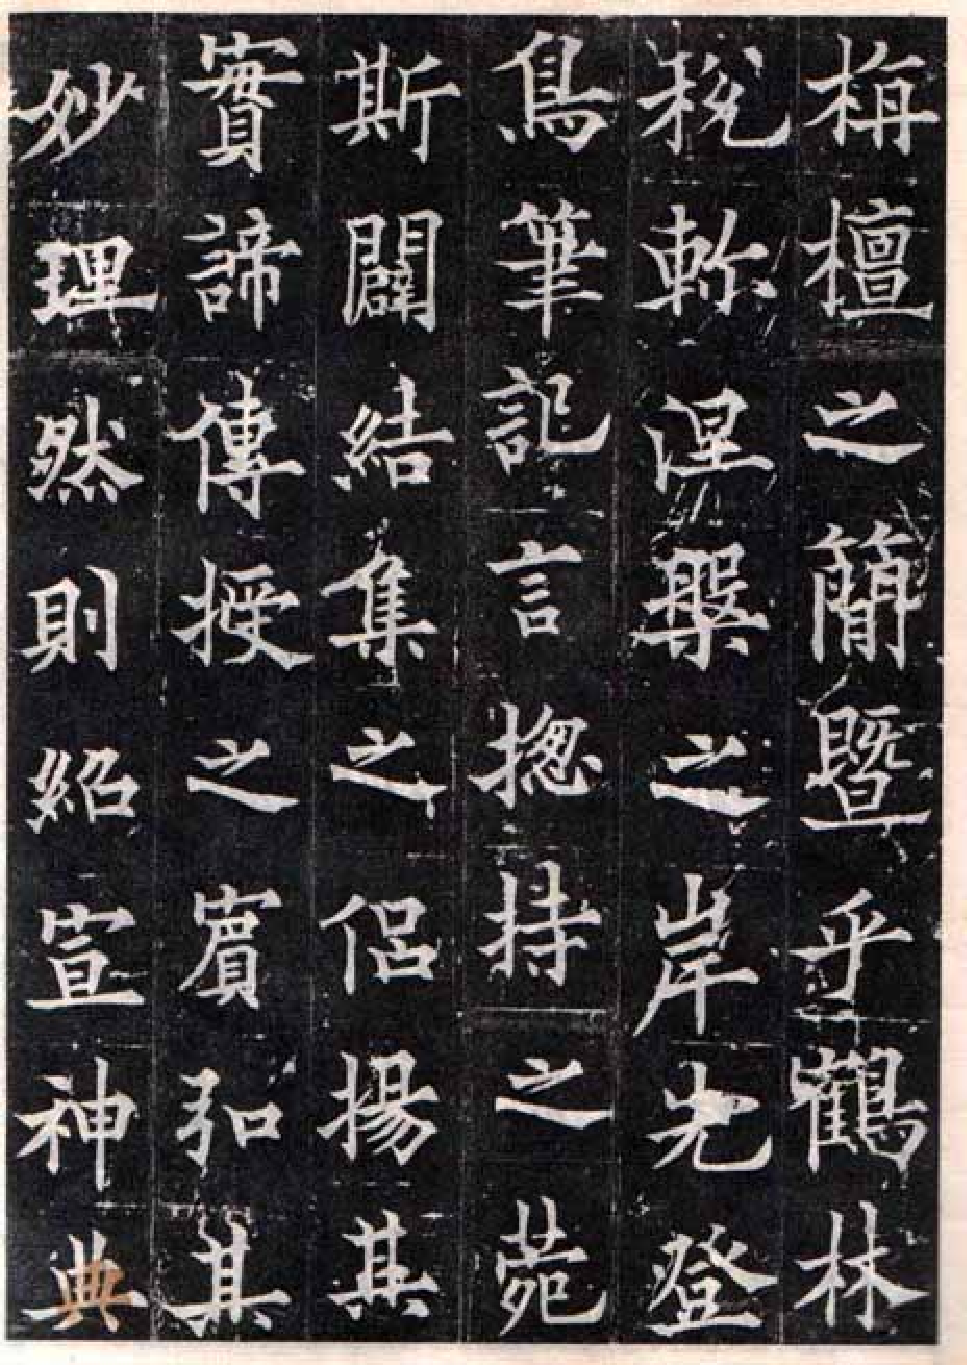 栴檀之簡暨乎鶴林
稅軫涅槃之岸先登
鳥筆記言揔持之菀
斯闢結集之侶揚其
實諦傳授之賓弘其
妙理然則紹宣神典